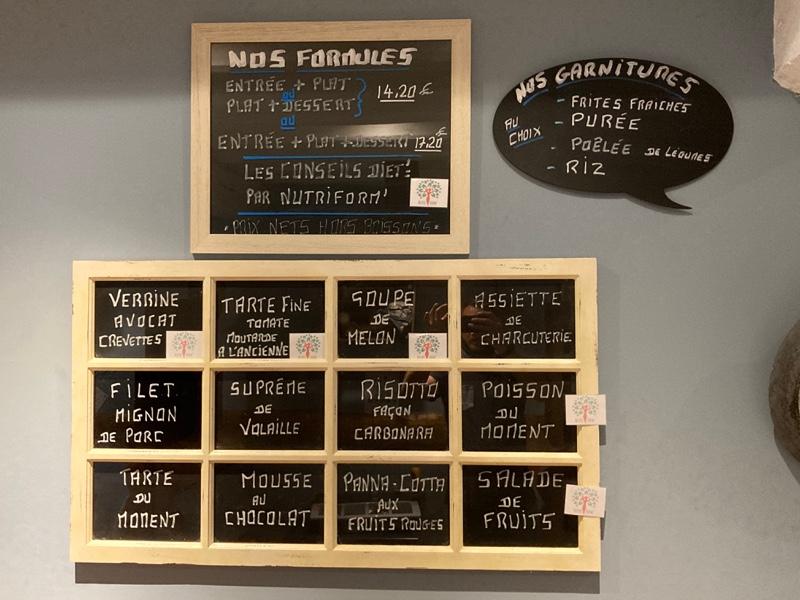 NOS FORMULES
ENTRÉE + PLAT
OU
PLAT + DESSERT
14,20 €
OU
ENTRÉE + PLAT + DESSERT 17,20 €
LES CONSEILS DIET'
PAR NUTRIFORM'
· PRIX NETS HORS BOISSONS ·
NOS GARNITURES
AU
CHOIX
- FRITES FRAICHES
- PURÉE
- POÊLÉE DE LÉGUMES
- RIZ
VERRINE
AVOCAT
CREVETTES
TARTE FINE
TOMATE
MOUTARDE
A L'ANCIENNE
SOUPE
DE
MELON
ASSIETTE
DE
CHARCUTERIE
FILET
MIGNON
DE PORC
SUPRÊME
DE
VOLAILLE
RISOTTO
FAÇON
CARBONARA
POISSON
DU
MOMENT
TARTE
DU
MOMENT
MOUSSE
AU
CHOCOLAT
PANNA-COTTA
AUX
FRUITS ROUGES
SALADE
DE
FRUITS